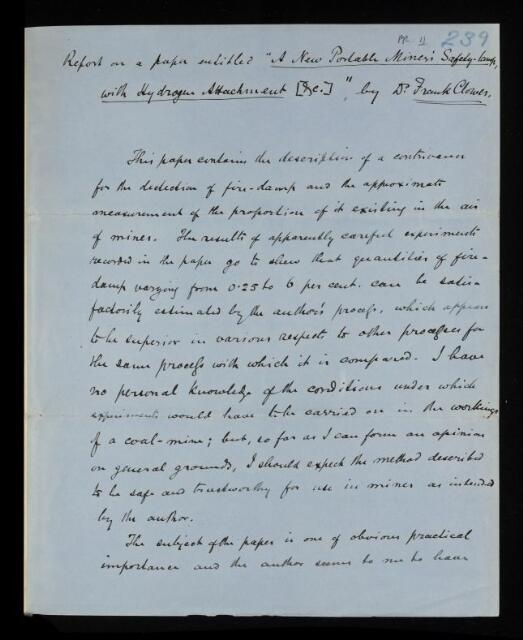 RR 11 239
Report on a paper entitled "A New Portable Miner's Safety-lamp,
with Hydrogen Attachment [&c.]", by Dr Frank Clowes.
This paper contains the description of a contrivance
for the detection of fire-damp and the approximate
measurement of the proportion of it existing in the air
of mines. The results of apparently careful experiments
recorded in the paper go to shew that quantities of fire-
damp varying from 0.25 to 6 per cent. can be satis-
factorily estimated by the author's process, which appears
to be superior in various respects to other processes for
the same process with which it is compared. I have
no personal knowledge of the conditions under which
experiments would have to be carried on in the workings
of a coal-mine; but, so far as I can form an opinion
on general grounds, I should expect the method described
to be safe and trustworthy for use in mines as intended
by the author.
The subject of the paper is one of obvious practical
importance and the author seems to me to have